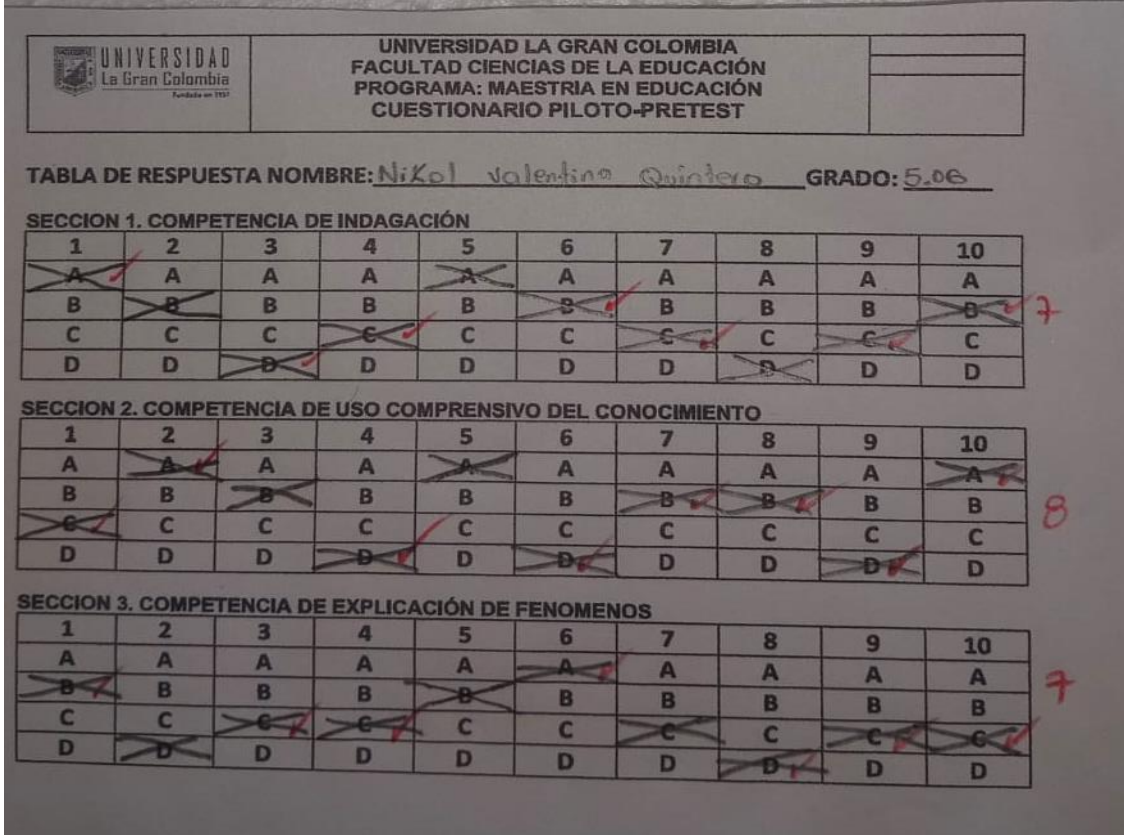 UNIVERSIDAD
La Gran Colombia
Fundada en 1951
UNIVERSIDAD LA GRAN COLOMBIA
FACULTAD CIENCIAS DE LA EDUCACIÓN
PROGRAMA: MAESTRIA EN EDUCACIÓN
CUESTIONARIO PILOTO-PRETEST
TABLA DE RESPUESTA NOMBRE: Nikol Valentina Quintero GRADO: 5.06
SECCION 1. COMPETENCIA DE INDAGACIÓN
1 2 3 4 5 6 7 8 9 10
A A A A A A A A A A
B B B B B B B B B B 7
C C C C C C C C C C
D D D D D D D D D D
SECCION 2. COMPETENCIA DE USO COMPRENSIVO DEL CONOCIMIENTO
1 2 3 4 5 6 7 8 9 10
A A A A A A A A A A
B B B B B B B B B B
C C C C C C C C C C 8
D D D D D D D D D D
SECCION 3. COMPETENCIA DE EXPLICACIÓN DE FENOMENOS
1 2 3 4 5 6 7 8 9 10
A A A A A A A A A A
B B B B B B B B B B 7
C C C C C C C C C C
D D D D D D D D D D